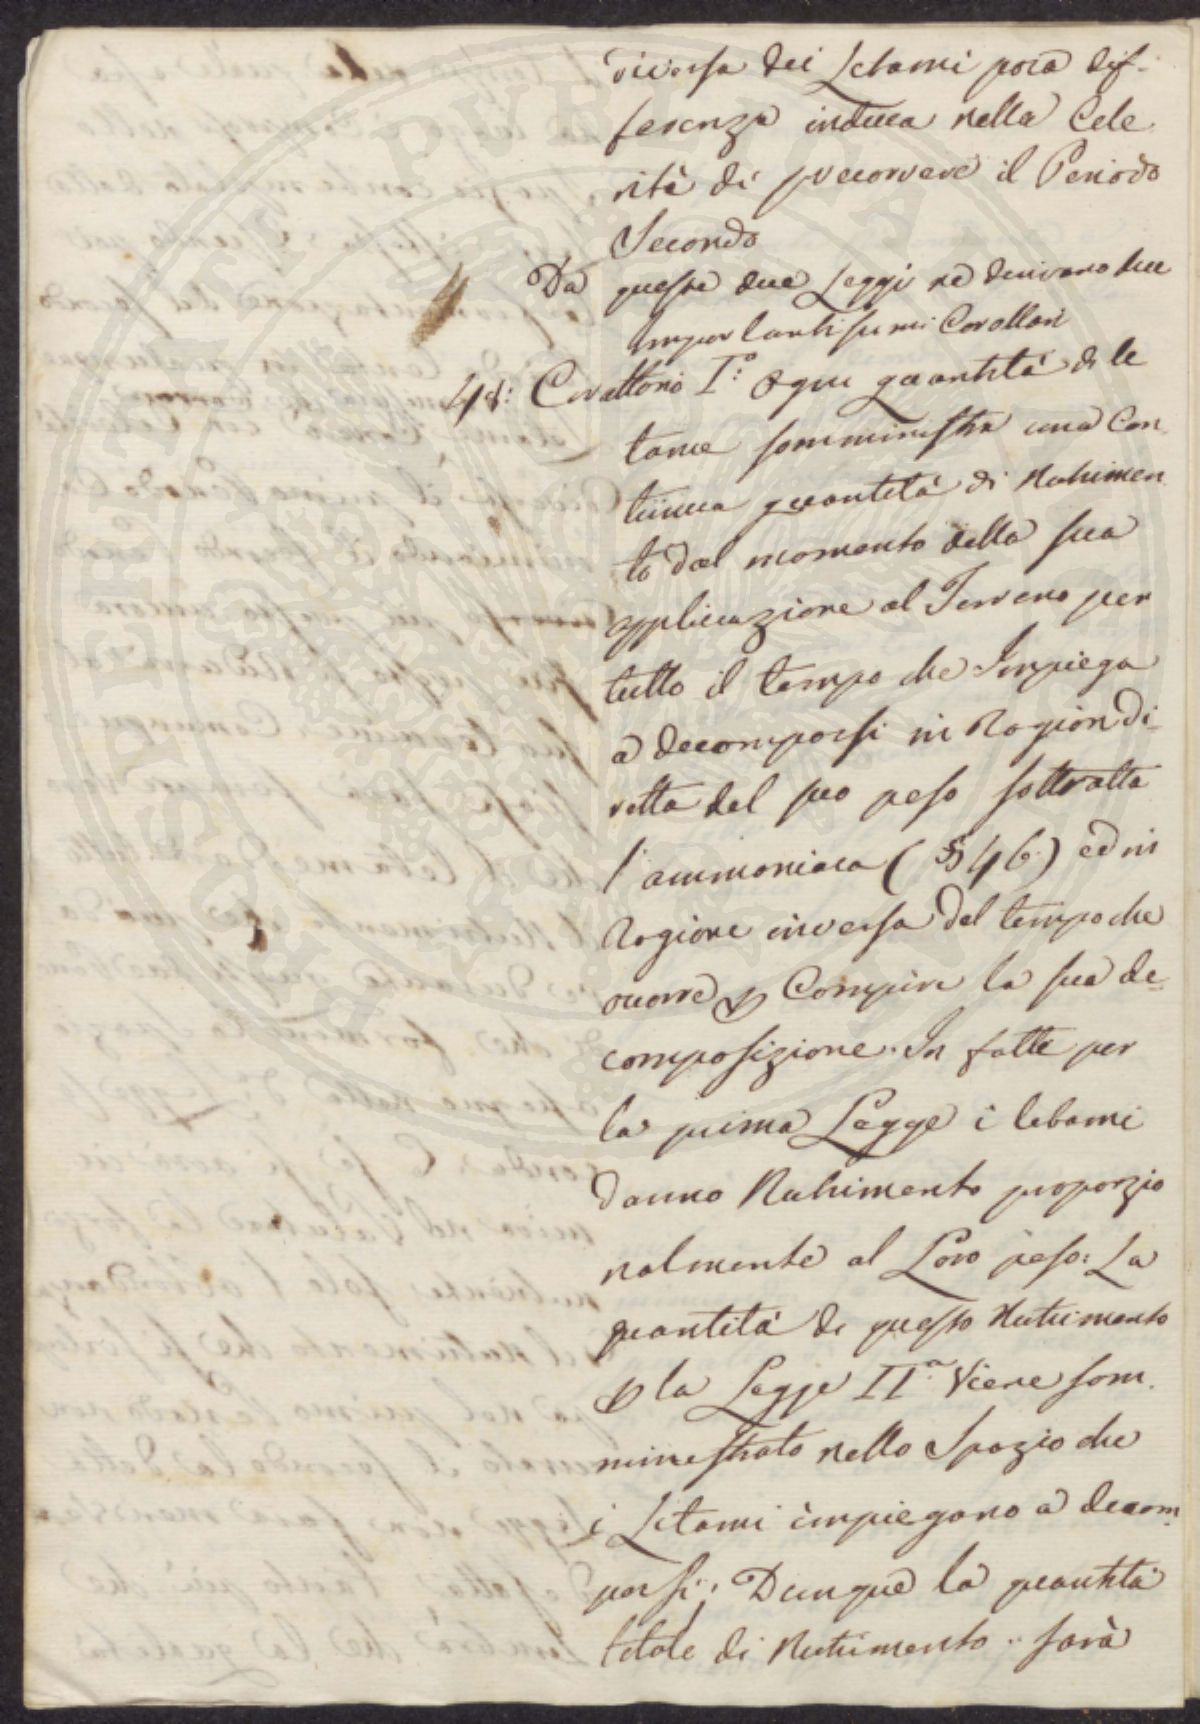 diversa dei Letami poca dif-
ferenza induca nella Cele
rità di precorrere il Periodo
Secondo
Da queste due Leggi ne derivano due
Importantissimi Corollari
48: Corollorio I.° Ogni quantità di le
tame somministra una Con
tinua quantità di Nutrimen
to dal momento della sua
applicazione al Terreno per
tutto il tempo che Impiega
a decomporsi in Ragion Di-
retta del suo peso sottratta
l'ammoniaca (§ 46.) ed in
Ragione inversa del tempo che
occorre p Compire la sua de-
composizione. In fatti per
la prima Legge i letami
danno Nutrimento proporzio
nalmente al Loro peso: La
quantità di questo Nutrimento
p la Legge II.a Viene som.
ministrato nello Spazio che
i Letami impiegano a decom
porsi; Dunque la quantità
totale di Nutrimento sarà